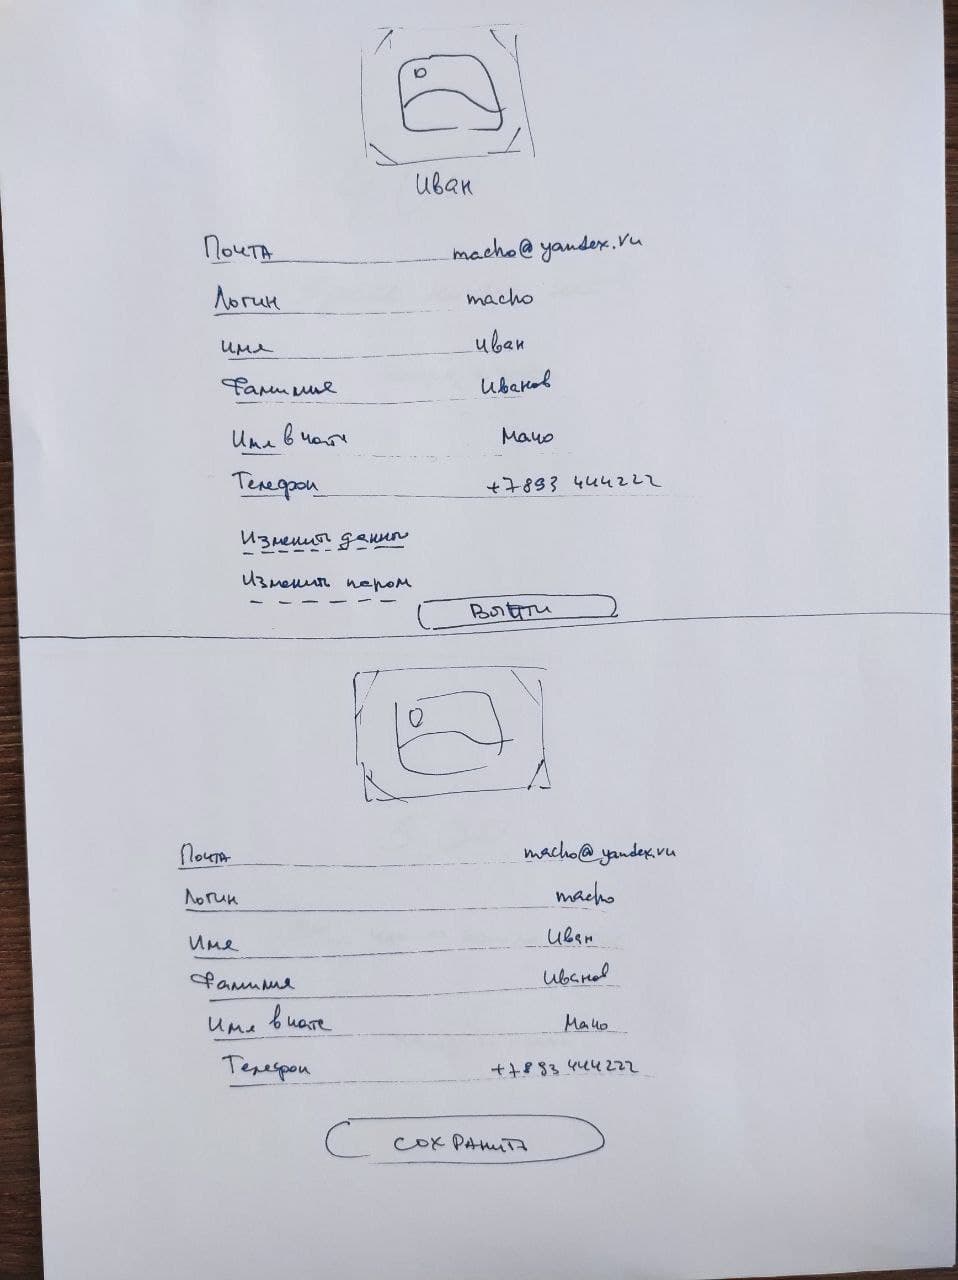 Иван
Почта macho@yandex.ru
Логин macho
Имя Иван
Фамилия Иванов
Имя в чате Мачо
Телефон +7893 444222
Изменить данные
Изменить пароль
Выйти
Почта macho@yandex.ru
Логин macho
Имя Иван
Фамилия Иванов
Имя в чате Мачо
Телефон +7893 444222
СОХРАНИТЬ